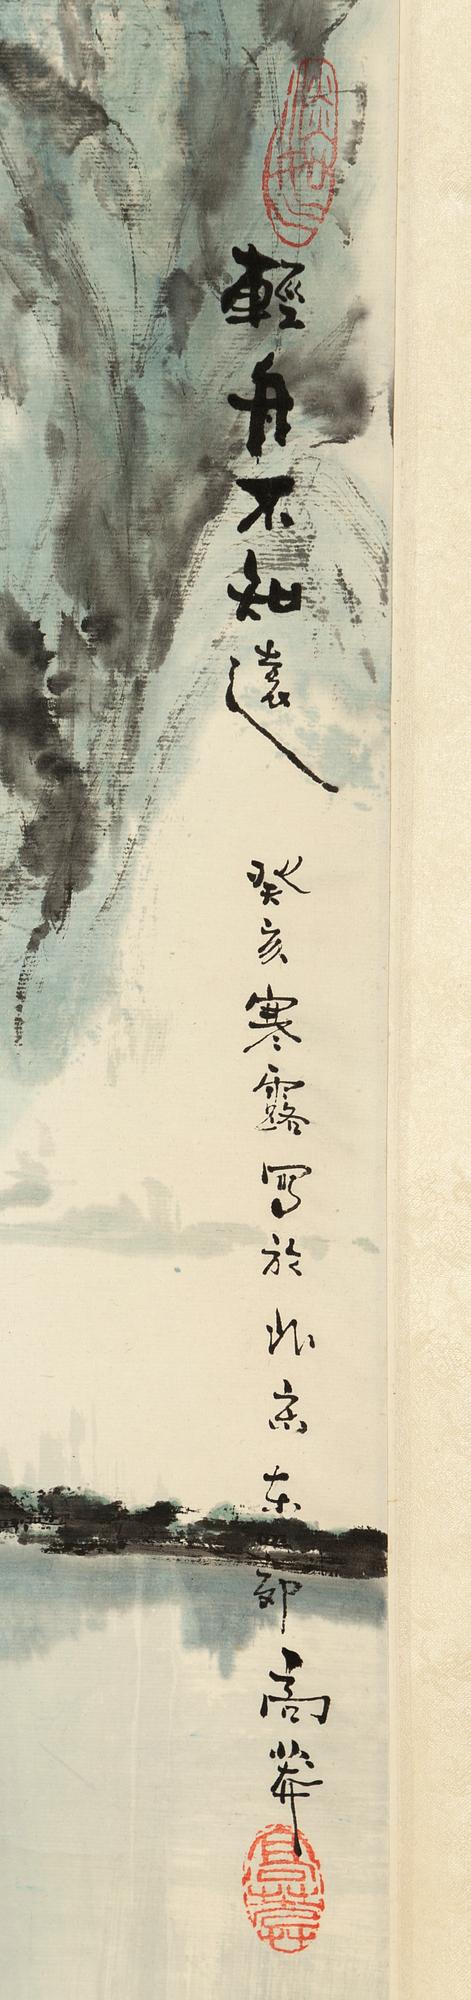 輕舟不知遠 癸亥寒露寫於北京东郊高莽
高莽